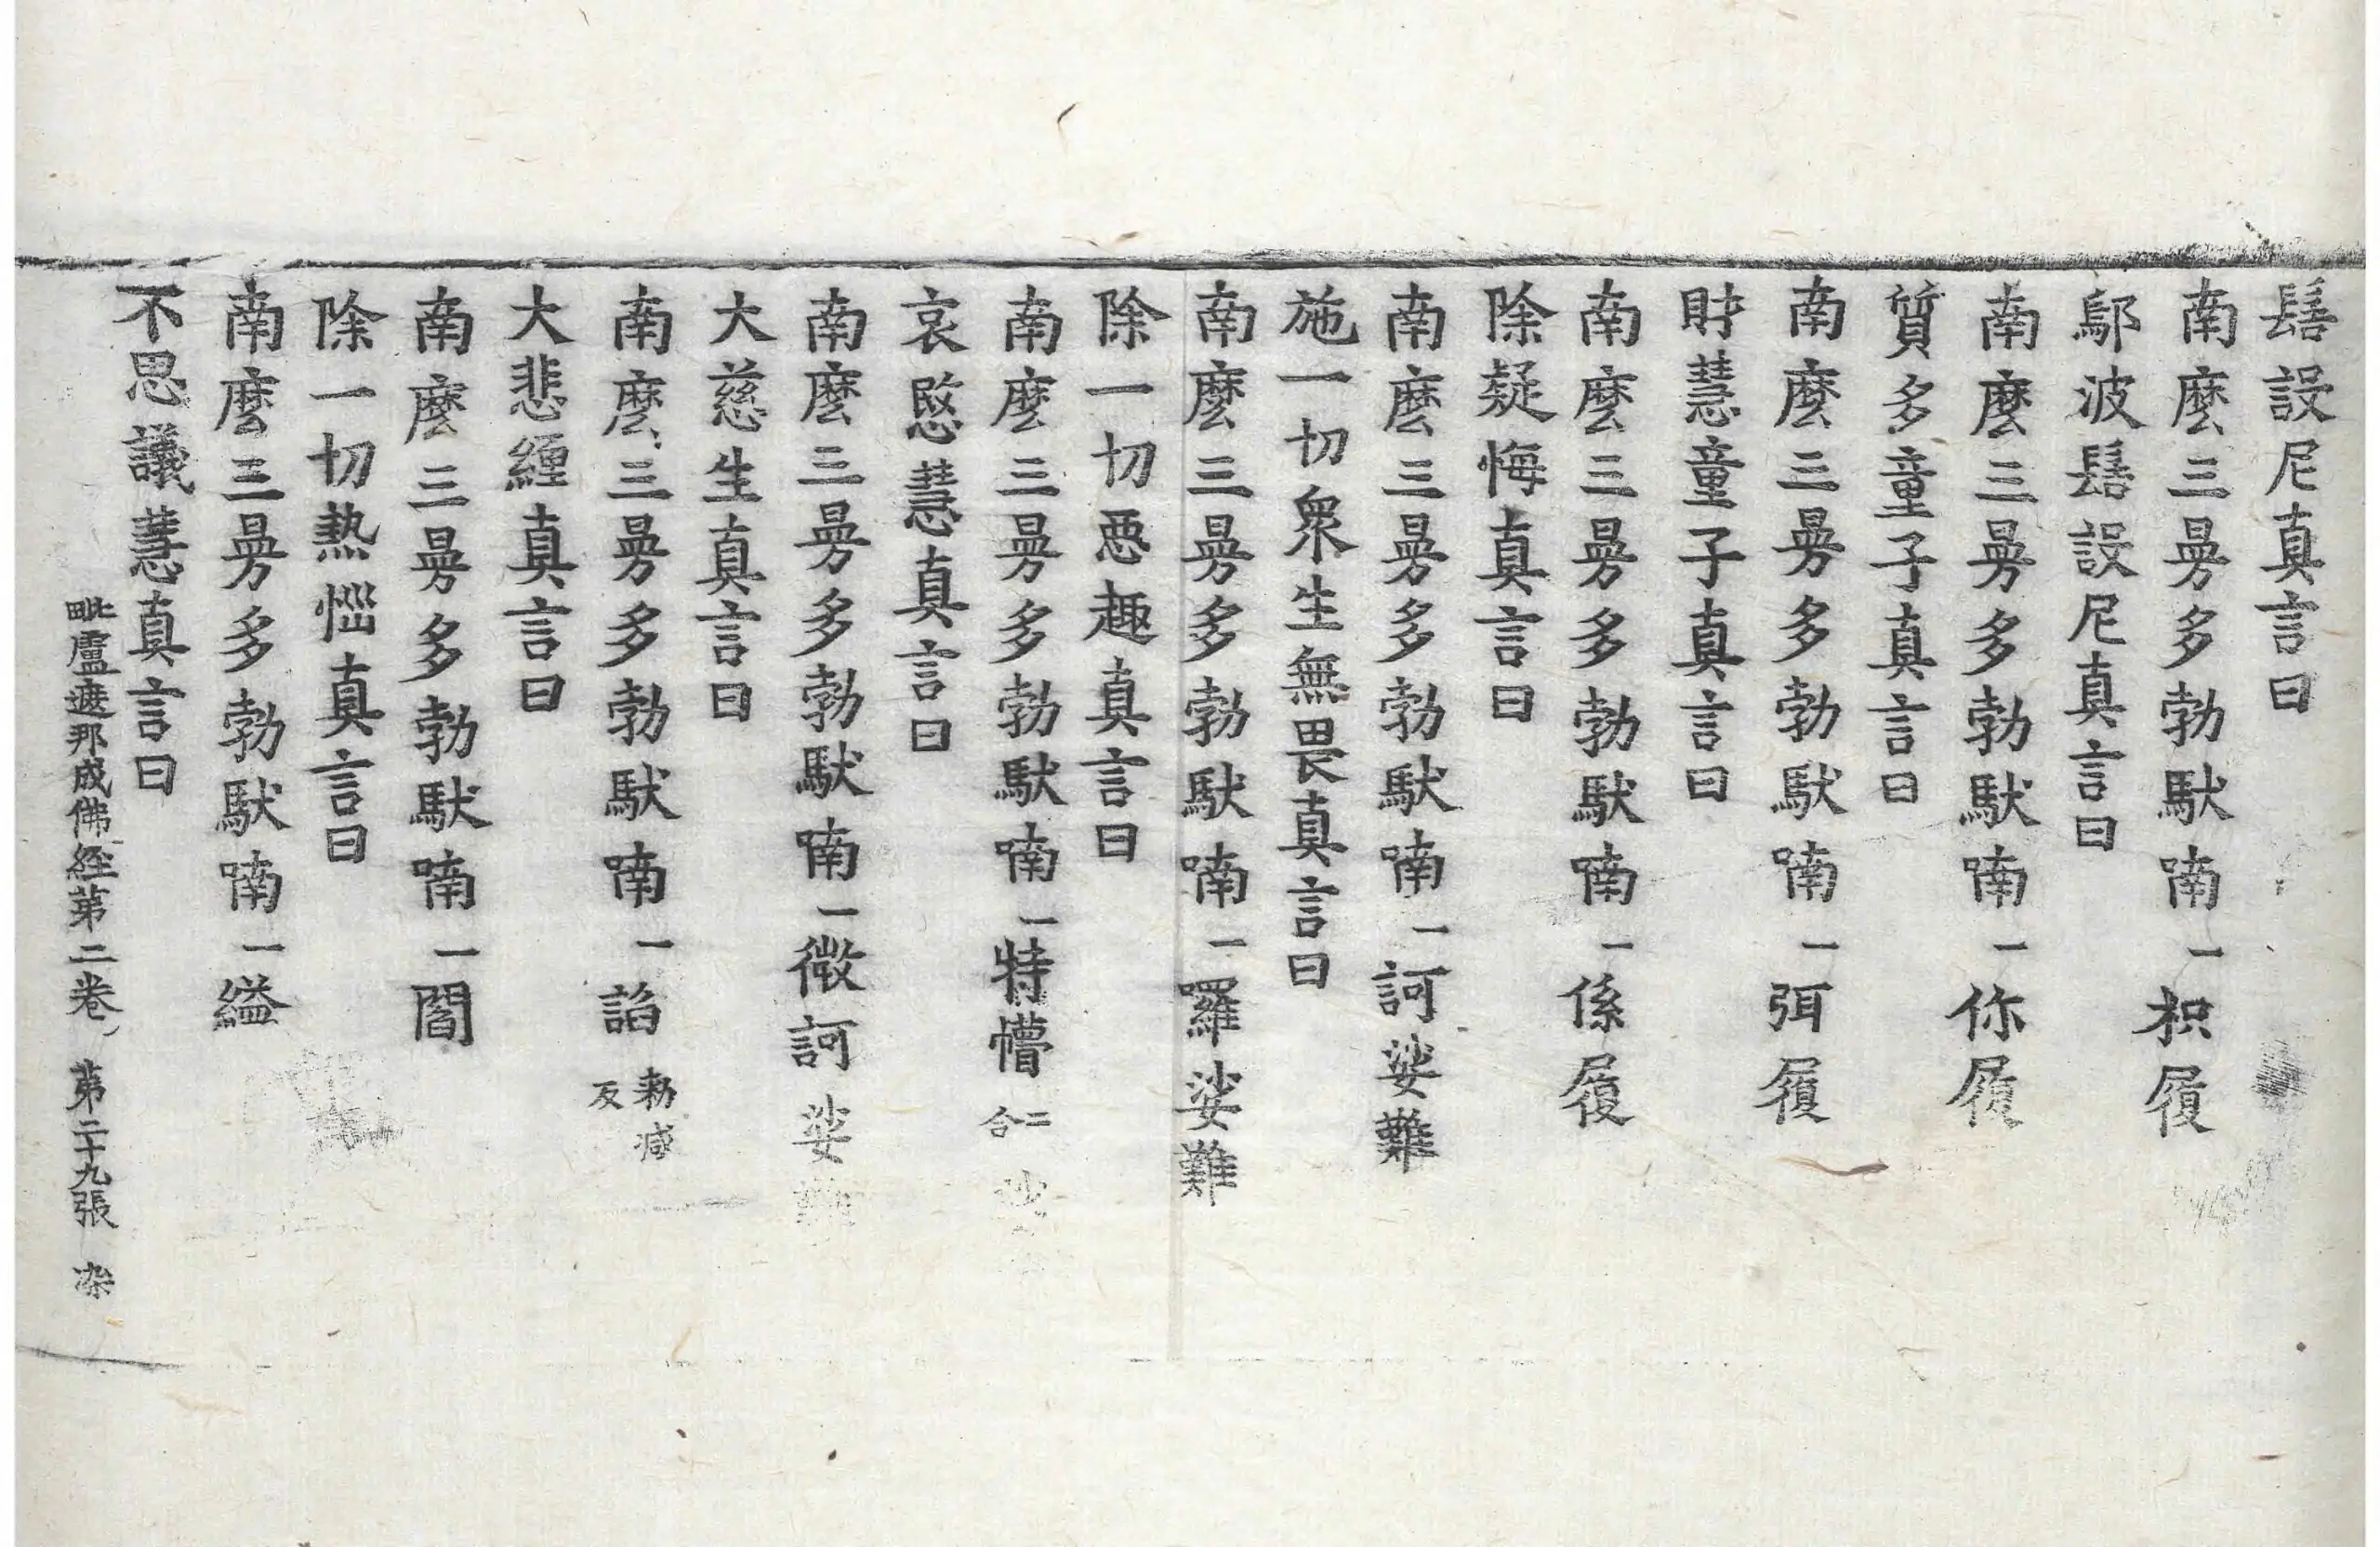 髻設尼真言曰
南麽三曼多勃馱喃一枳履
鄔波髻設尼真言曰
南麽三曼多勃馱喃一你履
質多童子真言曰
南麽三曼多勃馱喃一弭履
財慧童子真言曰
南麽三曼多勃馱喃一係履
除疑悔真言曰
南麽三曼多勃馱喃一訶娑難
施一切衆生無畏真言曰
南麽三曼多勃馱喃一囉娑難
除一切惡趣真言曰
南麽三曼多勃馱喃一特懵二合
哀愍慧真言曰
南麽三曼多勃馱喃一微訶娑難
大慈生真言曰
南麽三曼多勃馱喃一諂勑減反
大悲纏真言曰
南麽三曼多勃馱喃一閻
除一切熱惱真言曰
南麽三曼多勃馱喃一縊
不思議慧真言曰
毗盧遮那成佛經第二卷 第二十九張 染